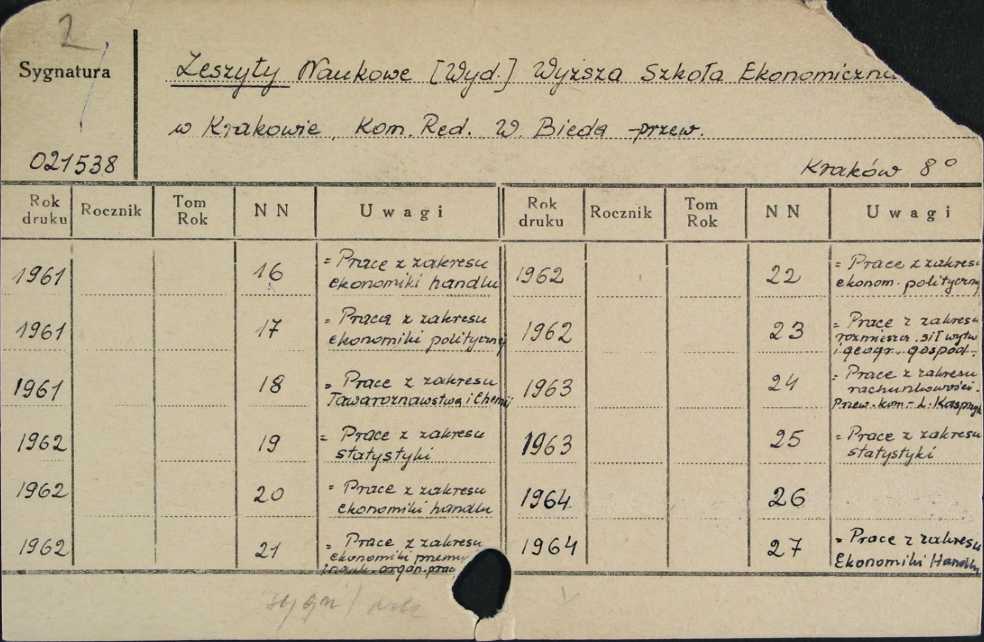 2
Sygnatura
Zeszyty Naukowe [Wyd.] Wyższa Szkoła Ekonomiczna
w Krakowie, Kom. Red. W. Bieda - przew.
021538
Kraków 8°
Rok druku Rocznik Tom Rok N N Uwagi Rok druku Rocznik Tom Rok N N Uwagi
1961 16 = Prace z zakresu
ekonomiki handlu
1961 17 = Pracą z zakresu
ekonomiki polityczny
1961 18 = Prace z zakresu
Towaroznawstwa i Chemii
1962 19 = Prace z zakresu
statystyki
1962 20 = Prace z zakresu
ekonomiki handlu
1962 21 = Prace z zakresu
ekonomiki przemy
organ. prac
1962 22 = Prace z zakresu
ekonom. polityczny
1962 23 = Prace z zakresu
rozmieszcz. sił wytw
i geogr. gospod.
1963 24 = Prace z zakresu
rachunkowości.
Przew. kom. L. Kasprzyk
1963 25 = Prace z zakresu
statystyki
1964 26
1964 27 = Prace z zakresu
Ekonomiki Handlu